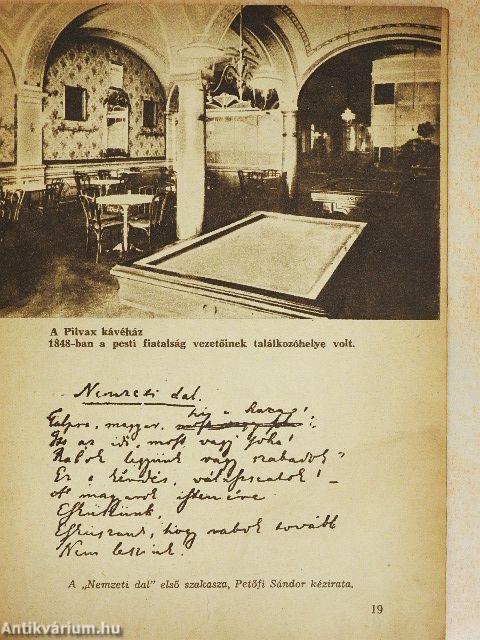 A Pilvax kávéház
1848-ban a pesti fiatalság vezetőinek találkozóhelye volt.
Nemzeti dal.
hí a haza!
Talpra, magyar,
Itt az idő, most vagy soha!
Rabok legyünk vagy szabadok?
Ez a kérdés, válasszatok! –
A magyarok istenére
Esküszünk,
Esküszünk, hogy rabok tovább
Nem leszünk!
A „Nemzeti dal" első szakasza, Petőfi Sándor kézirata.
19
Antikvárium.hu